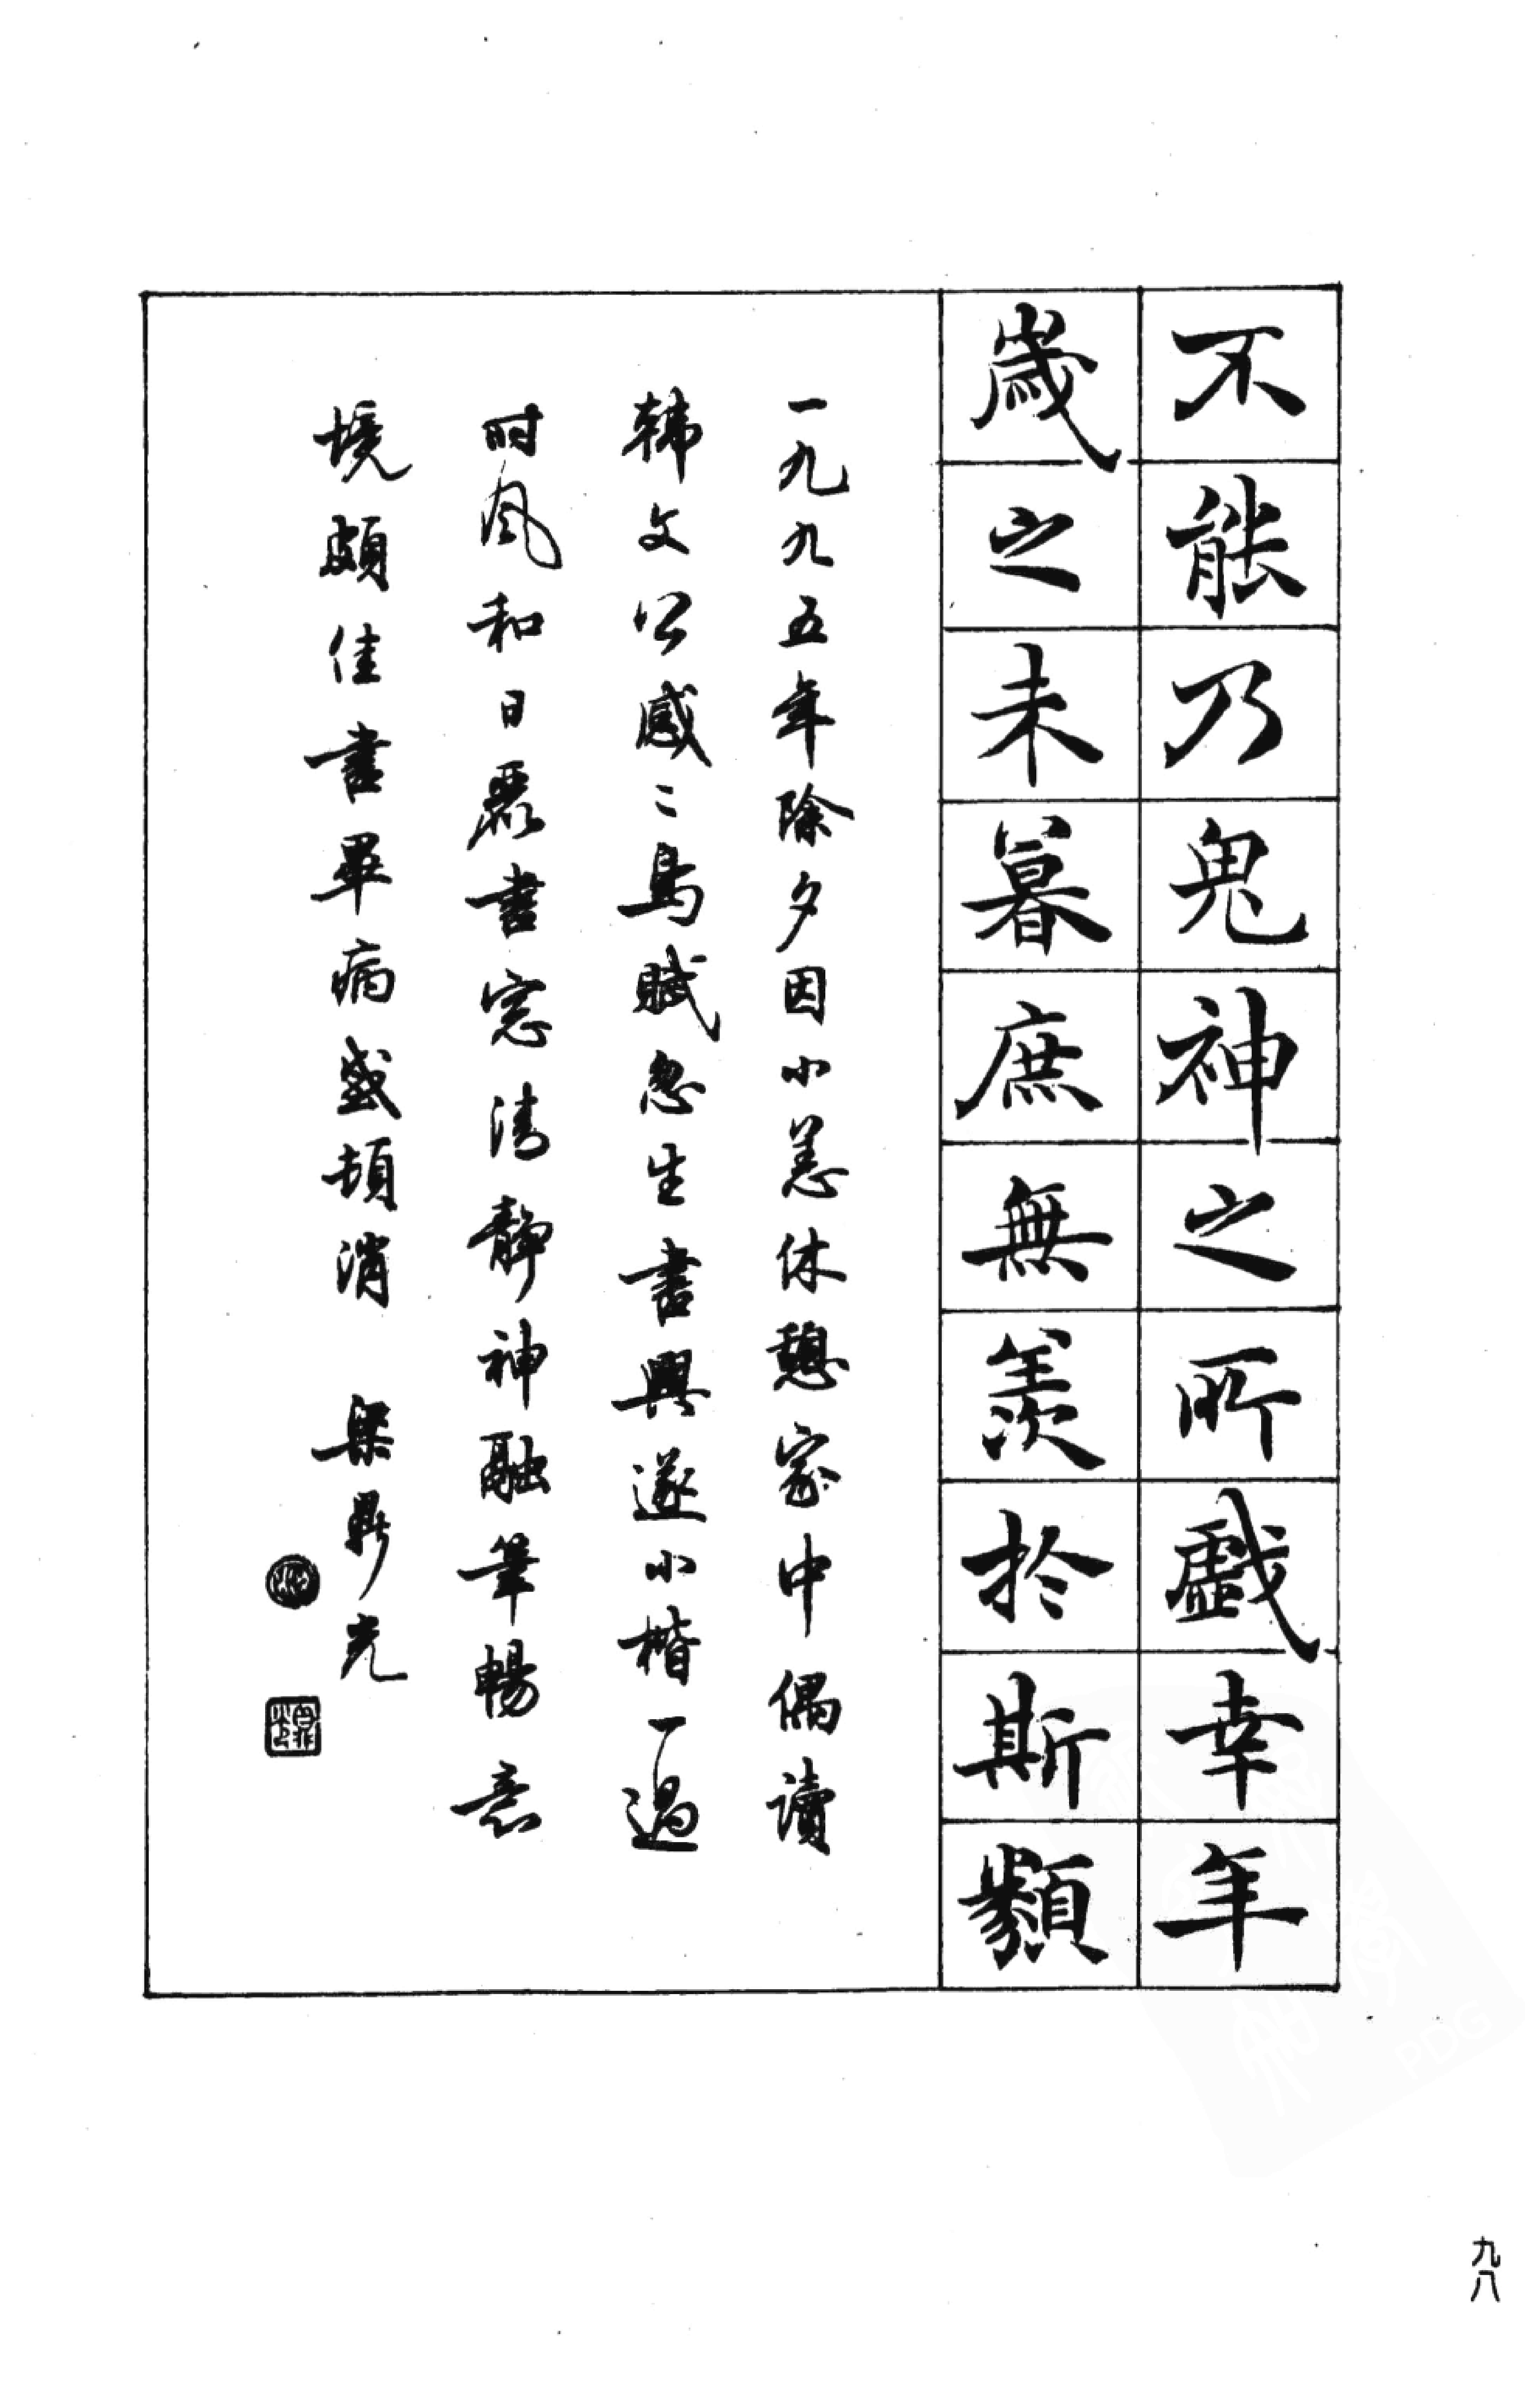 不能乃鬼神之所戲幸年
歲之未暮庶無羨於斯類
一九九五年除夕因小恙休憩家中偶讀
韓文公感二鳥賦忽生書興遂小楷一過
时风和日麗書窓清靜神融筆暢意
境頗佳書畢病感頓消 梁鼎光
九八
PDG